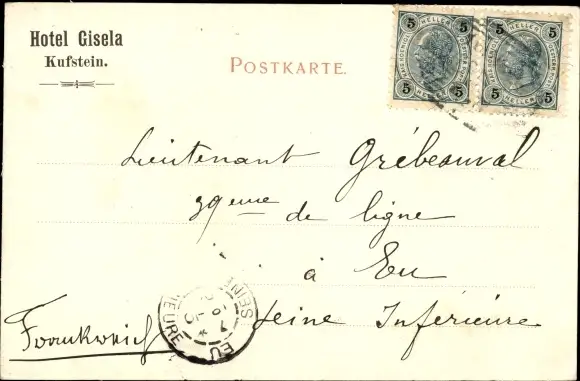 Hotel Gisela
Kufstein.
POSTKARTE.
5 HELLER 5
5 HELLER 5
5 HELLER 5
5 HELLER 5
Lieutenant Grébeauval
39eme de ligne
à Eu
Seine Inférieure
Frankreich
EU